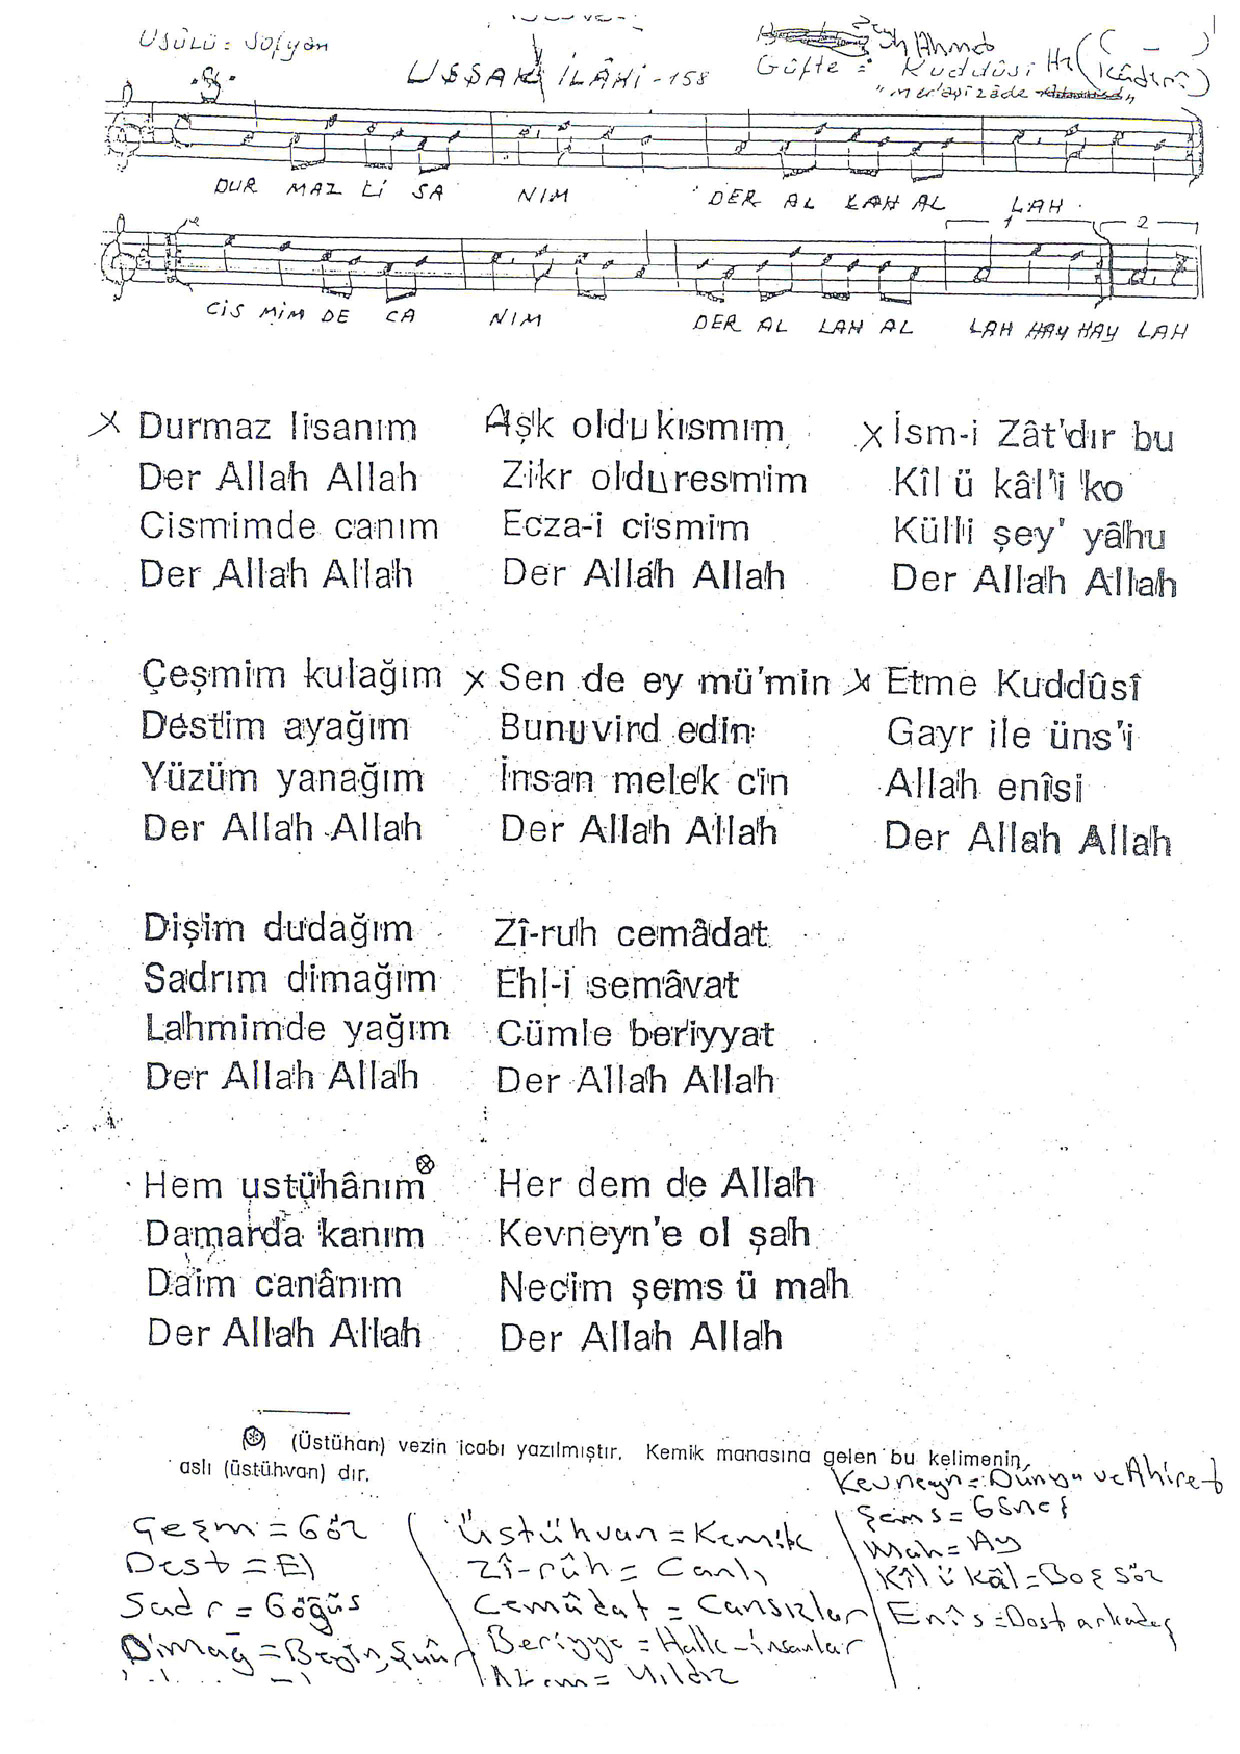 USÛLÜ: Sofyan
UŞŞAK İLÂHİ - 158
Şeyh Ahmed
Güfte: Kuddûsi Hz (Kâdirî)
"Mer'aşizâde"
DUR MAZ Lİ SA NIM DER AL LAH AL LAH
1 2
CİS MİM DE CA NIM DER AL LAH AL LAH HAY HAY LAH
x Durmaz lisanım
Der Allah Allah
Cismimde canım
Der Allah Allah
Çeşmim kulağım
Destim ayağım
Yüzüm yanağım
Der Allah Allah
Dişim dudağım
Sadrım dimağım
Lahmimde yağım
Der Allah Allah
Hem ustühânım
Damarda kanım
Daim canânım
Der Allah Allah
Aşk oldu kısmım
Zikr oldu resmim
Ecza-i cismim
Der Allah Allah
x Sen de ey mü'min
Bunu vird edin
İnsan melek cin
Der Allah Allah
Zî-ruh cemâdat
Ehl-i semâvat
Cümle beriyyat
Der Allah Allah
Her dem de Allah
Kevneyn'e ol şah
Necim şems ü mah
Der Allah Allah
x İsm-i Zât'dır bu
Kîl ü kâl'i ko
Külli şey' yâhu
Der Allah Allah
x Etme Kuddûsî
Gayr ile üns'i
Allah enîsi
Der Allah Allah
(Üstühan) vezin icabı yazılmıştır. Kemik manasına gelen bu kelimenin
aslı (üstühvan) dır.
Çeşm = Göz
Dest = El
Sadr = Göğüs
Dimağ = Beyin, Şuûr
Üstühvan = Kemik
Zî-rûh = Canlı
Cemâdat = Cansızlar
Beriyye = Halk - insanlar
= Yıldız
Kevneyn = Dünya ve Ahiret
Şems = Güneş
Mah = Ay
Kîl ü kâl = Boş söz
Enîs = Dost arkadaş